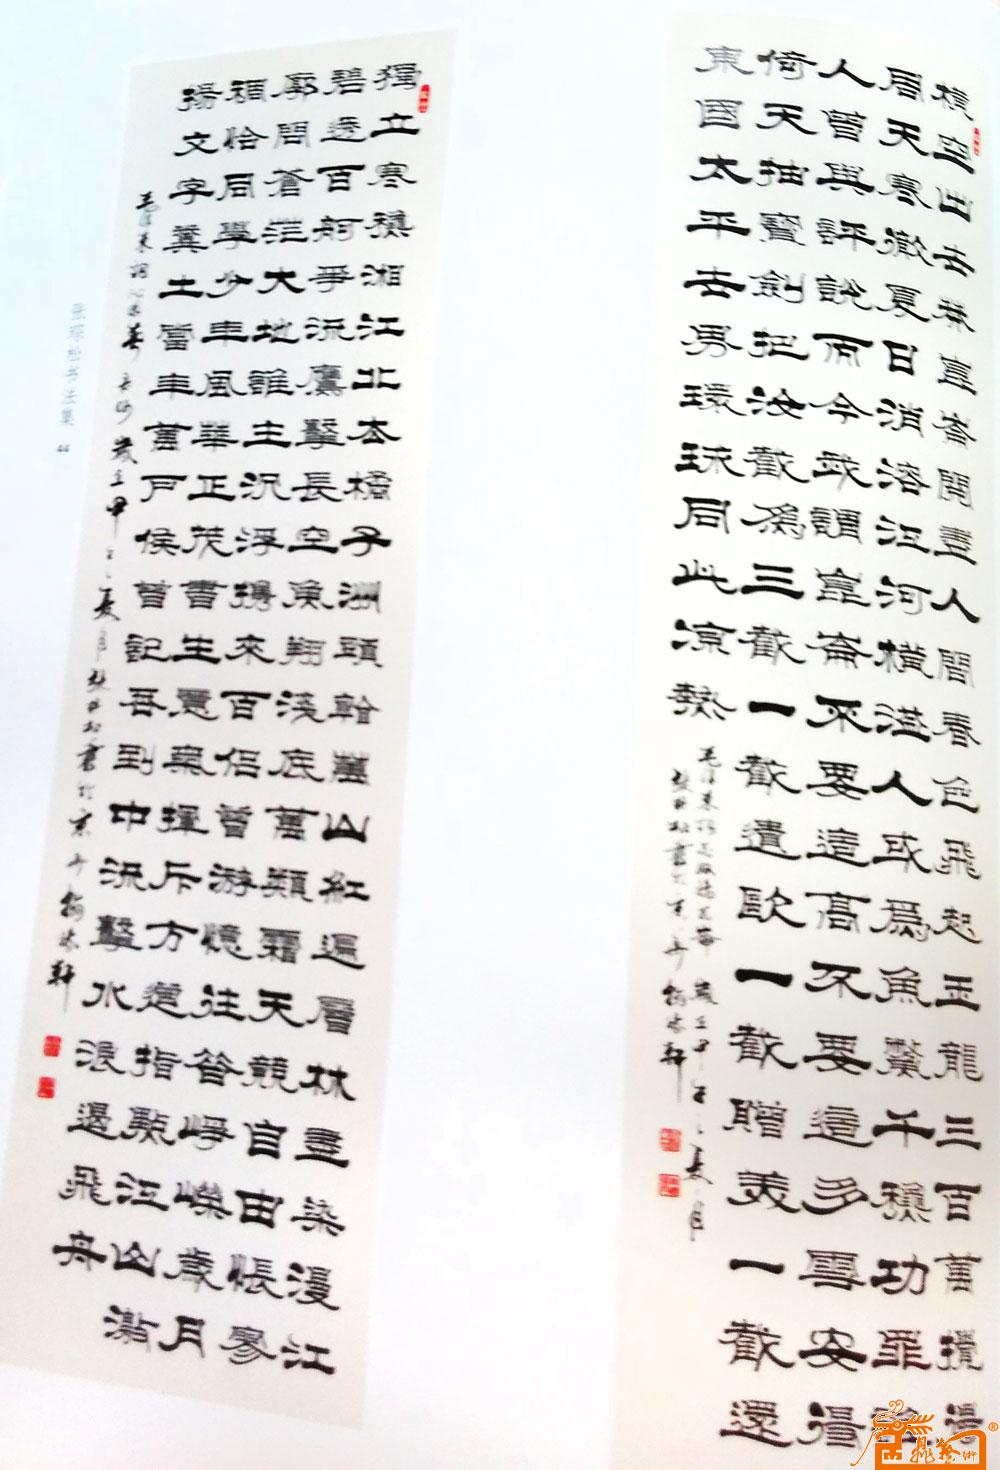 橫空出世莽崑崙閱盡人間春色飛起玉龍三百萬攪得
周天寒徹夏日消溶江河橫溢人或爲魚鱉千秋功罪誰
人曾與評說而今我謂崑崙不要這高不要這多雪安得
倚天抽寶劍把汝裁爲三截一截遺歐一截贈美一截還
東國太平世界環球同此涼熱
毛澤東詞念奴嬌崑崙 歲在甲午之夏月
書於京
獨立寒秋湘江北去橘子洲頭看萬山紅遍層林盡染漫江
碧透百舸爭流鷹擊長空魚翔淺底萬類霜天競自由悵寥
廓問蒼茫大地誰主沉浮攜來百侶曾游憶往昔崢嶸歲月
稠恰同學少年風華正茂書生意氣揮斥方遒指點江山激
揚文字糞土當年萬戶侯曾記吾到中流擊水浪遏飛舟
毛澤東詞沁園春長沙 歲在甲午之夏月 書於京
书法集 44